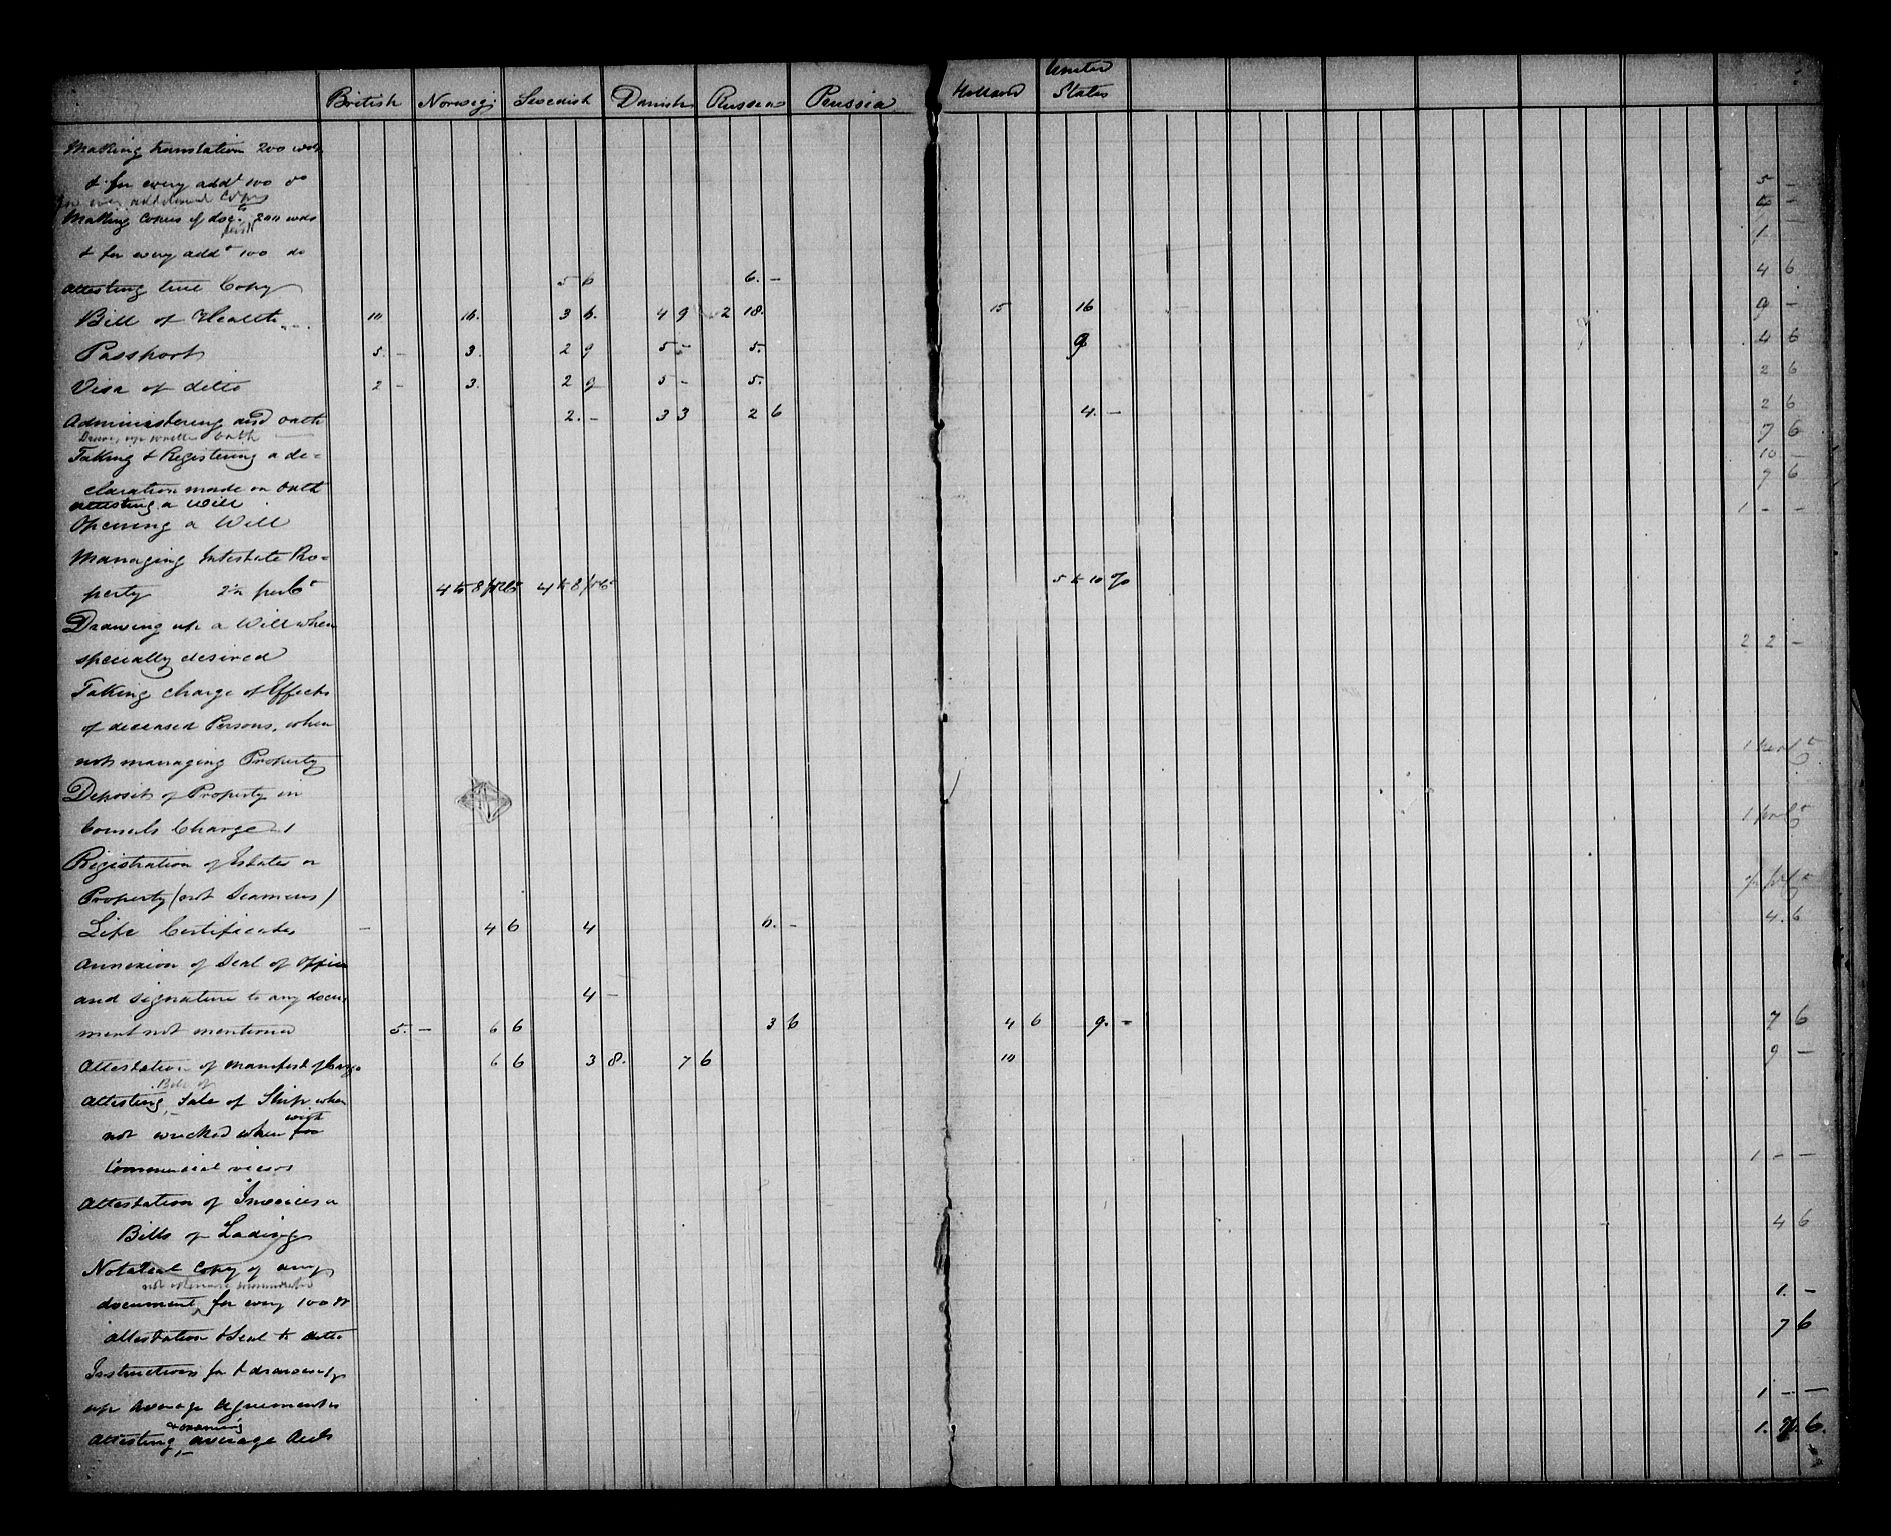 British Norweg: Swedish Danish Russia Prussia Holland United States
Making translation 200 wds
& for every addl 100 do 5 -
for every additional Copy
Making Copies of doc: 200 wds
& for every addl 100 do 1
Attesting true Copy 5 6 6. - 4 6
Bill of Health 10 16. 3 6. 4 9 2 18. 15 16 9 -
Passport 5. - 3. 2 9 5 - 5. 9 4 6
Visa of ditto 2 - 3. 2 9 5 - 5. 2 6
Administering an oath 2. - 3 3 2 6 4. - 2 6
Drawing up written oath 7 6
Taking & Registering a de= 10 -
claration made on Oath 7 6
Attesting a Will
Opening a Will 1 - -
Managing Intestate Pro=
perty 2½ perCt 4 to 8 prCt 4 to 8 prCt 5 to 10 %
Drawing up a Will when
specially desired 2 2 -
Taking charge of Effects
of deceased Persons, when
not managing Property 1 perCt
Deposit of Property in
Consuls Charge 1 1 prCt
Registration of Estates or
Property (not Seamens)
Life Certificates - 4 6 4 6. - 4. 6
Annexion of Seal of Office
and signature to any docu 4 -
ment not mentioned 5. - 6 6 3 6 4 6 9. - 7 6
Attestation of Manifest of Cargo 6 6 3 8. 7 6 10 9 -
Bill of
Attesting Sale of Ship when
with
not wrecked when for
Commercial views 1 - -
Attestation of Invoices or
Bills of Lading 4 6
Notarial Copy of any
not otherwise enumerated
document, for every 100 W 1. -
Attestation & Seal to ditto 7 6
Instructions for & drawing
up Average Agreements 1 - -
& examining
Attesting average Accts 1. 7. 6.